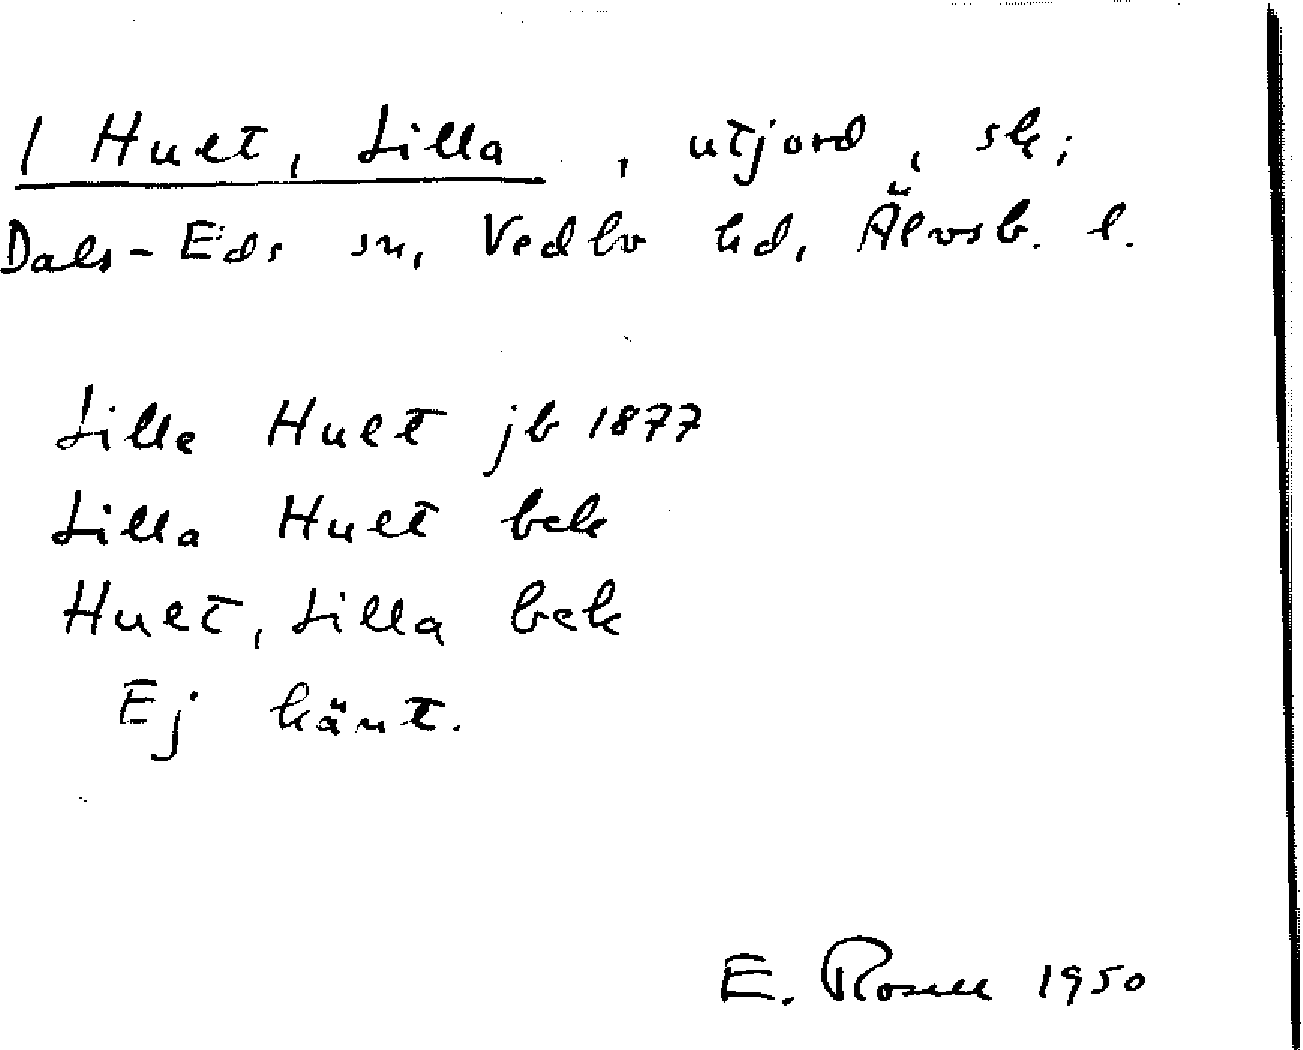 1 Hult, Lilla , utjord, sk;
Dals-Eds sn, Vedbo hd, Älvsb. l.
Lilla Hult jb 1877
Lilla Hult bek
Hult, Lilla bek
Ej känt.
E. Rosell 1950